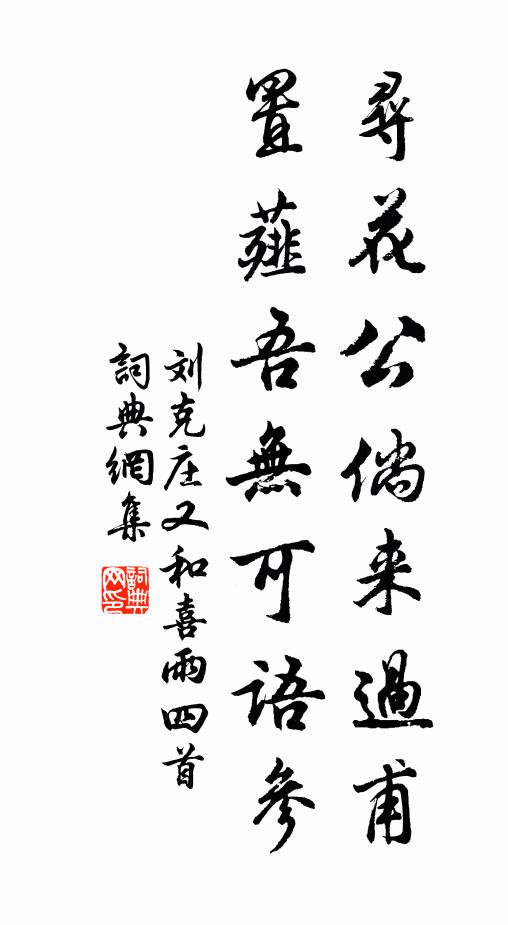 尋花公倘来過甫
置薤吾無可語參
刘克庄又和喜雨四首
詞典網集
詞典網印